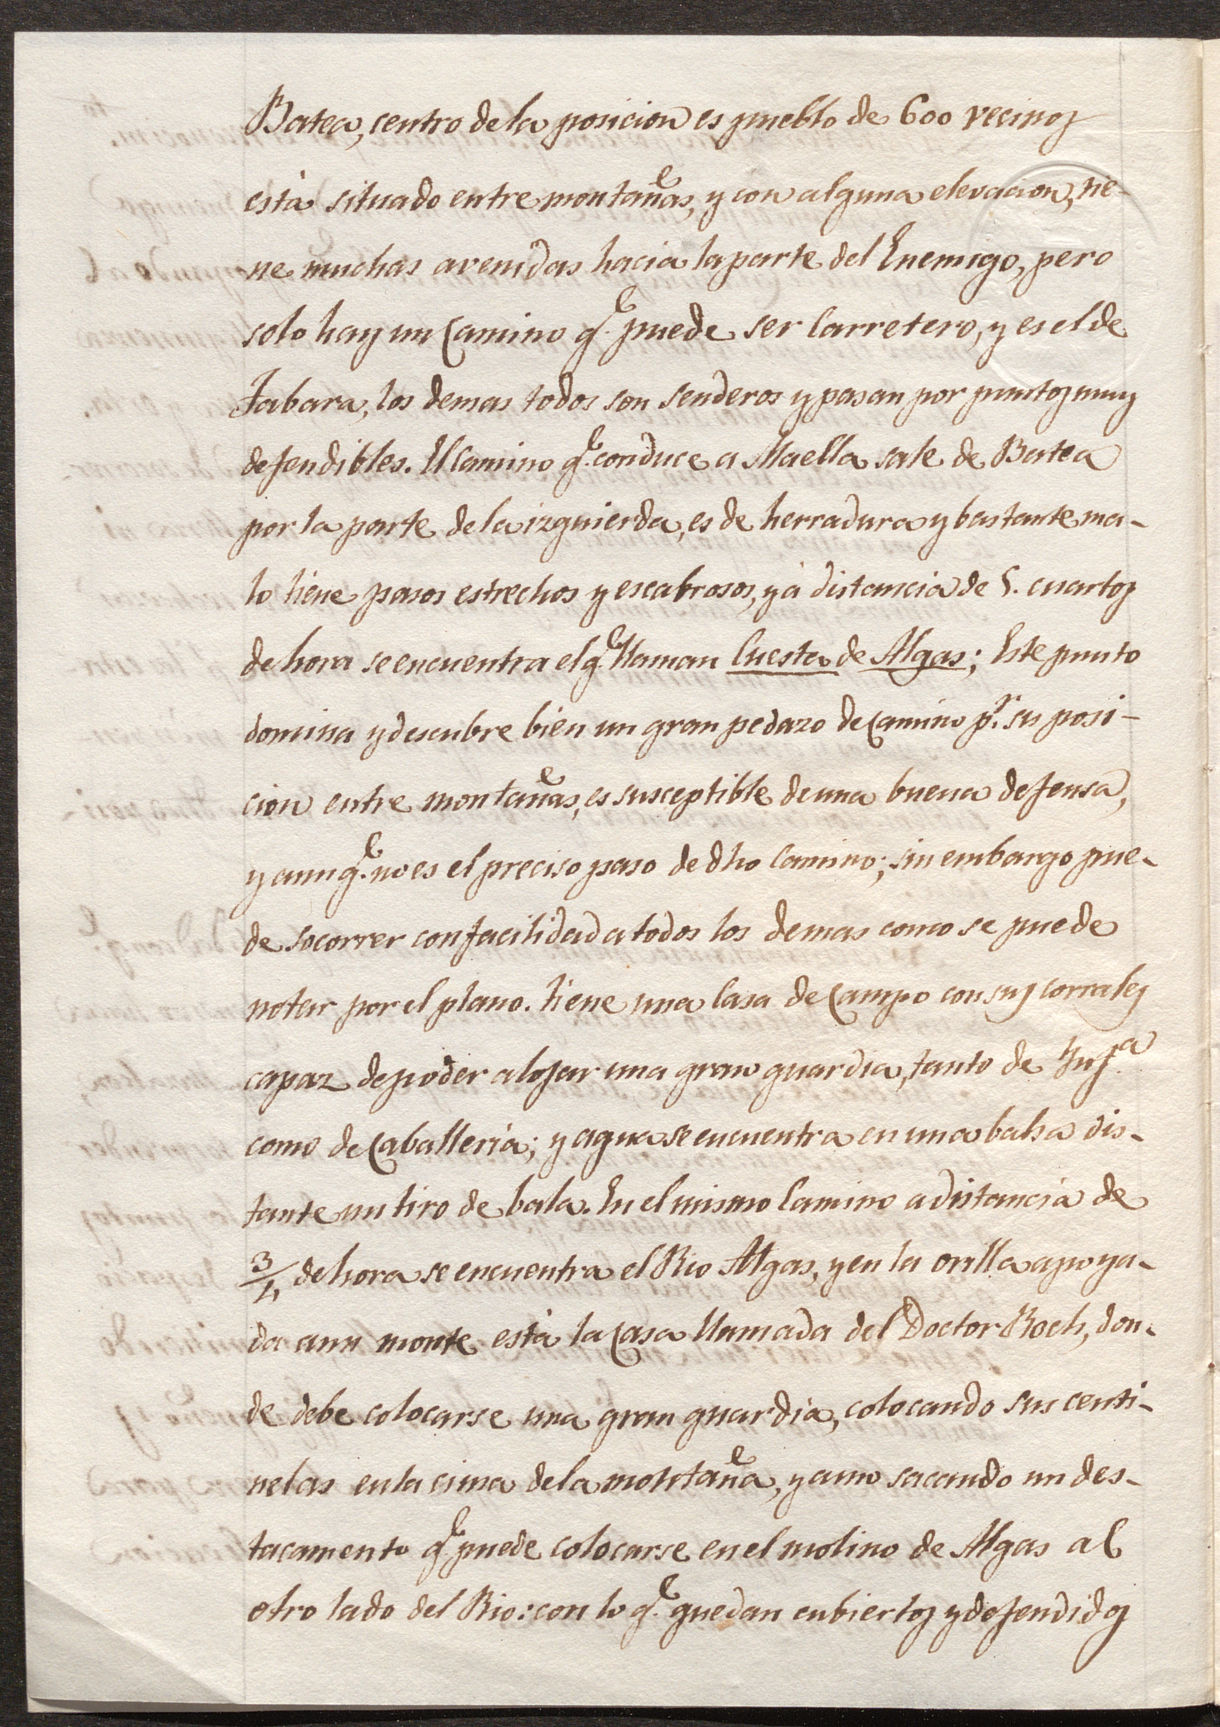 Batea, centro de la posicion es pueblo de 600 vecinos
està situado entre montañas, y con alguna elevacion, tie-
ne muchas avenidas hacia la parte del Enemigo, pero
solo hay un Camino q.e puede ser Carretero, y es el de
Fabara, los demas todos son senderos y pasan por puntos muy
defendibles. El Camino q.e conduce a Maella sale de Batea
por la parte de la izquierda, es de herradura y bastante ma-
lo tiene pasos estrechos y escabrosos, y à distancia de 5. cuartos
de hora se encuentra el q.e llaman Cuesta de Algas; Este punto
domina y descubre bien un gran pedazo de Camino p.r su posi-
cion entre montañas, es susceptible de una buena defensa,
y aunq.e no es el preciso paso de dho Camino; sin embargo pue-
de socorrer con facilidad a todos los demas como se puede
notar por el plano. tiene una Casa de Campo con sus corrales
capaz de poder alojar una gran guardia, tanto de Inf.a
como de Caballeria; y agua se encuentra en una balsa dis-
tante un tiro de bala. En el mismo Camino a distancia de
3/4 de hora se encuentra el Rio Algas, y en la orilla apoya-
da a un monte està la Casa llamada del Doctor Roch, don-
de debe colocarse una gran guardia, colocando sus centi-
nelas en la cima de la montaña, y aun sacando un des-
tacamento q.e puede colocarse en el molino de Algas al
otro lado del Rio: con lo q.e quedan cubiertos y defendidos